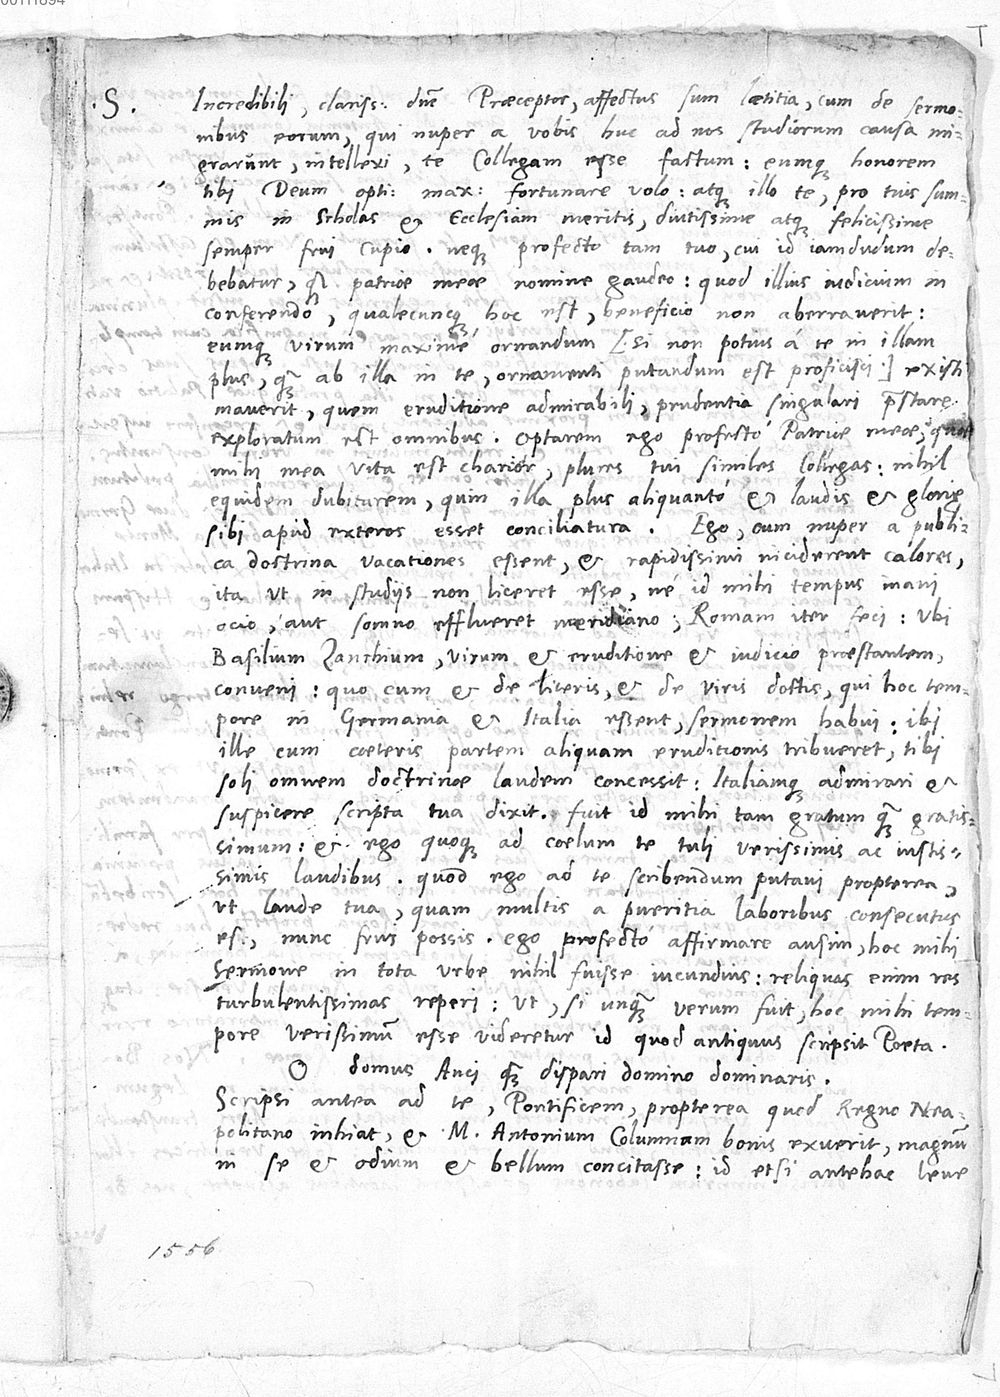 00111894
.S. Incredibili, clariss: dn̄e Præceptor, affectus sum lætitia, cum de sermo-
nibus eorum, qui nuper a vobis huc ad nos studiorum causa mi-
grarunt, intellexi, te Collegam esse factum: eumq honorem
tibi Deum opti: max: fortunare volo: atq illo te, pro tuis sum-
mis in Scholas & Ecclesiam meritis, diutissime atq felicissime
semper frui cupio. neq profecto tam tuo, cui id iamdudum de-
bebatur, q̃ patriæ meæ nomine gaudeo: quod illius iudicium in
conferendo, qualecunq hoc est, beneficio non aberraverit:
eumq virum maxime ornandum [: si non potius á te in illam
plus, q̃ ab illa in te, ornamenti putandum est proficisci :] existi
maverit, quem eruditione admirabili, prudentia singulari p̄stare
exploratum est omnibus. Optarem ego profectó Patriæ meæ, quæ
mihi mea vita est charior, plures tui similes Collegas: nihil
equidem dubitarem, quin illa plus aliquantó & laudis & gloriæ
sibi apud exteros esset conciliatura. Ego, cum nuper a publi-
ca doctrina vacationes essent, & rapidissimi inciderent calores,
ita vt in studijs non liceret esse, né id mihi tempus inani
ocio, aut somno efflueret meridiano; Romam iter feci: Vbi
Basilium Zanchium, virum & eruditione & iudicio præstantem,
conveni: quo cum & de literis, & de viris doctis, qui hoc tem-
pore in Germania & Italia essent, sermonem habui: ibi
ille cum cæteris partem aliquam eruditionis tribueret, tibi
soli omnem doctrinæ laudem concessit: Italiamq admirari &
suspicere scripta tua dixit. fuit id mihi tam gratum q̃ gratis-
simum: & ego quoq ad cœlum te tuli verissimis ac iustis-
simis laudibus. quod ego ad te scribendum putavi propterea,
vt laude tua, quam multis a pueritia laboribus consecutus
es, nunc frui possis. ego profectó affirmare ausim, hoc mihi
sermone in tota vrbe nihil fuisse iucundius: reliquas enim res
turbulentissimas reperi: vt, si unq̃ verum fuit, hoc mihi tem-
pore verissimū esse videretur id quod antiquus scripsit Poeta.
O domus Anci q̃ dispari domino dominaris.
Scripsi antea ad te, Pontificem, propterea quod Regno Nea-
politano inhiat, & M. Antonium Columnam bonis exuerit, magnū
in se & odium & bellum concitasse: id etsi antehac leve
1556